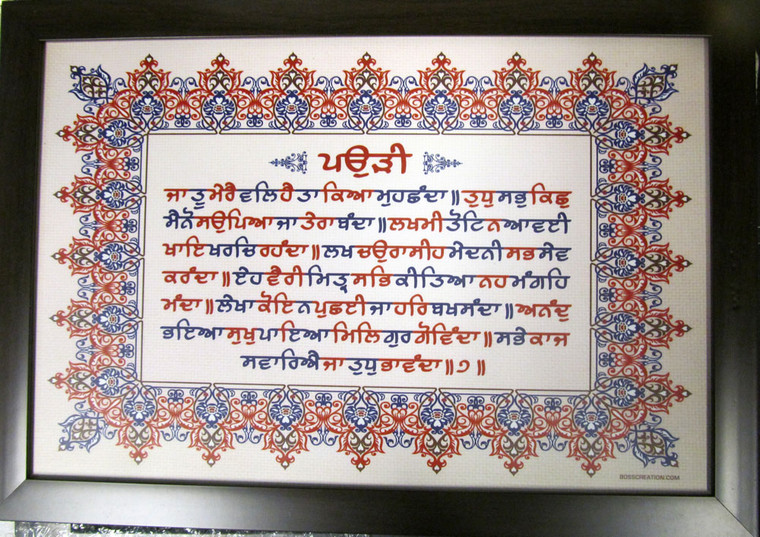 ਪਉੜੀ
ਜਾ ਤੂ ਮੇਰੈ ਵਲਿ ਹੈ ਤਾ ਕਿਆ ਮੁਹਛੰਦਾ ॥ ਤੁਧੁ ਸਭੁ ਕਿਛੁ
ਮੈਨੋ ਸਉਪਿਆ ਜਾ ਤੇਰਾ ਬੰਦਾ ॥ ਲਖਮੀ ਤੋਟਿ ਨ ਆਵਈ
ਖਾਇ ਖਰਚਿ ਰਹੰਦਾ ॥ ਲਖ ਚਉਰਾਸੀਹ ਮੇਦਨੀ ਸਭ ਸੇਵ
ਕਰੰਦਾ ॥ ਏਹ ਵੈਰੀ ਮਿਤ੍ਰ ਸਭਿ ਕੀਤਿਆ ਨਹ ਮੰਗਹਿ
ਮੰਦਾ ॥ ਲੇਖਾ ਕੋਇ ਨ ਪੁਛਈ ਜਾ ਹਰਿ ਬਖਸੰਦਾ ॥ ਅਨੰਦੁ
ਭਇਆ ਸੁਖੁ ਪਾਇਆ ਮਿਲਿ ਗੁਰ ਗੋਵਿੰਦਾ ॥ ਸਭੇ ਕਾਜ
ਸਵਾਰਿਐ ਜਾ ਤੁਧੁ ਭਾਵੰਦਾ ॥੭॥
BOSSCREATION.COM